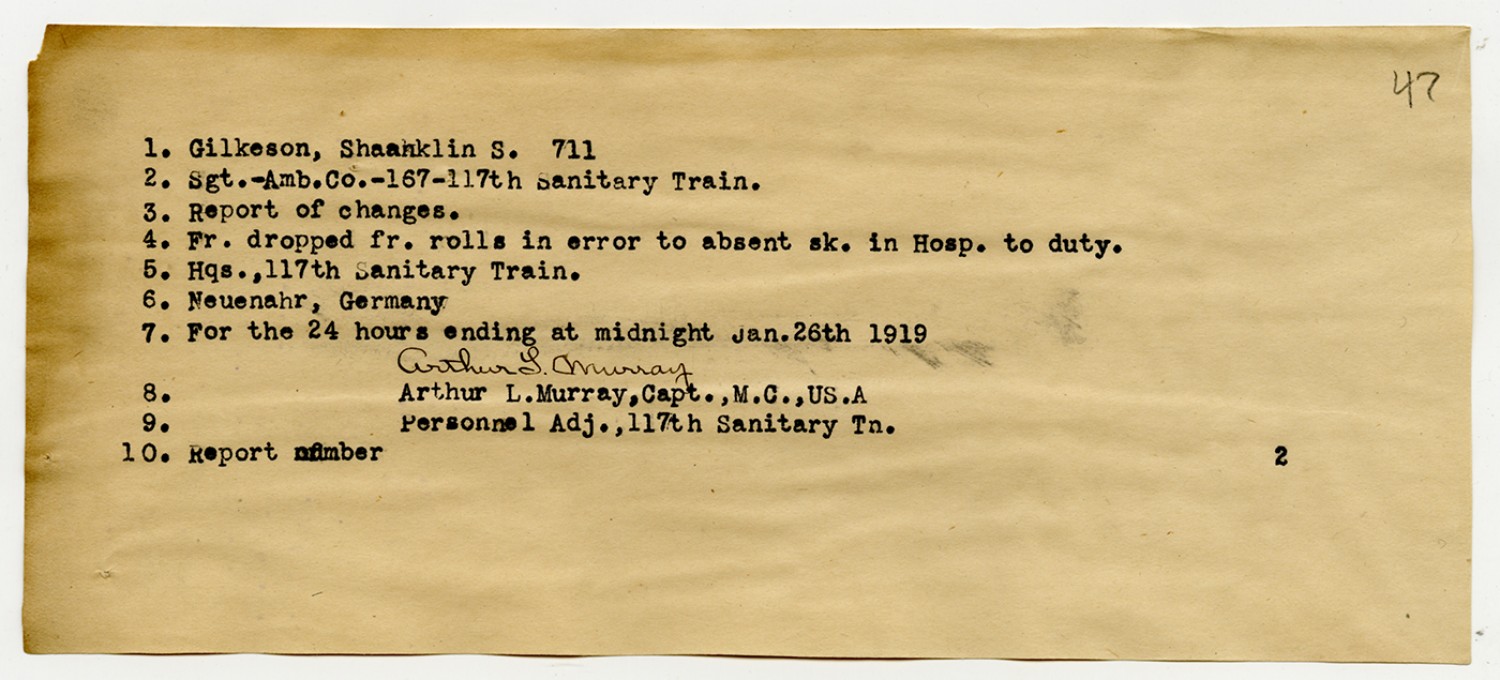 47
1. Gilkeson, Shaanklin S. 711
2. Sgt.-Amb.Co.-167-117th Sanitary Train.
3. Report of changes.
4. Fr. dropped fr. rolls in error to absent sk. in Hosp. to duty.
5. Hqs.,117th Sanitary Train.
6. Neuenahr, Germany
7. For the 24 hours ending at midnight Jan.26th 1919
Arthur L. Murray
8. Arthur L.Murray,Capt.,M.C.,US.A
9. Personnel Adj.,117th Sanitary Tn.
10. Report number 2